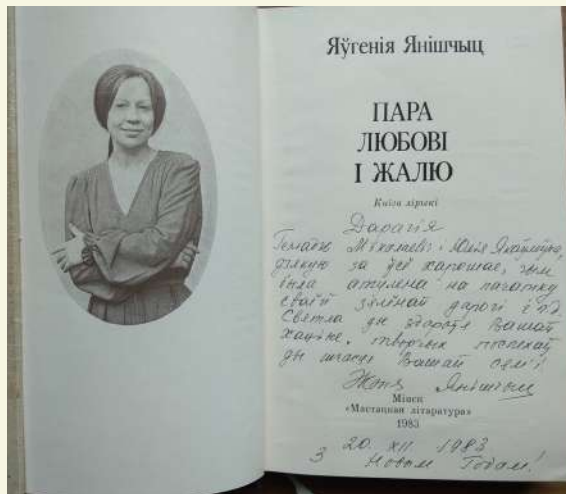 Яўгенія Янішчыц
ПАРА
ЛЮБОВІ
І ЖАЛЮ
Кніга лірыкі
Дарагія
Генадзь Міхалавіч і Юлія Якаўлеўна,
дзякую за ўсё харошае, чым
была атулена на пачатку
сваёй зялёнай дарогі і г.д.
Святла ды здароўя Вашай
хаціне, творчых поспехаў
ды шчасця Вашай сям'і
Жэня Янішчыц
Мінск
«Мастацкая літаратура»
1983
20. XII. 1983
З Новым Годам!